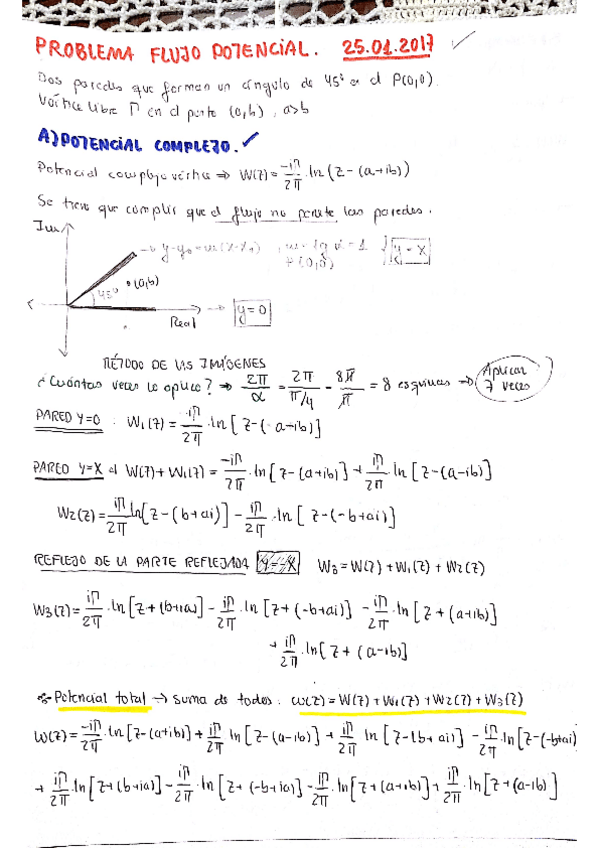 PROBLEMA FLUJO POTENCIAL. 25.01.2017 ✓
Dos paredes que forman un ángulo de 45° en el P(0,0).
Vórtice libre Γ en el punto (a,b), a>b
A) POTENCIAL COMPLEJO. ✓
Potencial complejo vórtice ⇒ W(z) = -iΓ/2π · ln(z-(a+ib))
Se tiene que cumplir que el flujo no penetre las paredes.
Im
y-y₀=m(x-x₀), m=tg α=1 {y=x
P(0,0)
•(a,b)
45°
Real
y=0
MÉTODO DE LAS IMÁGENES
¿Cuántas veces lo aplico? ⇒ 2π/α = 2π/π/4 = 8π/π = 8 esquinas ⇒ Aplicar 7 veces
PARED Y=0 : W₁(z) = iΓ/2π · ln[z-(a-ib)]
PARED Y=X a W(z)+W₁(z) = -iΓ/2π · ln[z-(a+ib)] + iΓ/2π · ln[z-(a-ib)]
W₂(z) = iΓ/2π ln[z-(b+ai)] - iΓ/2π · ln[z-(-b+ai)]
REFLEJO DE LA PARTE REFLEJADA y=-x W₃ = W(z)+W₁(z)+W₂(z)
W₃(z) = iΓ/2π · ln[z+(b+ia)] - iΓ/2π · ln[z+(-b+ai)] - iΓ/2π · ln[z+(a+ib)]
+ iΓ/2π · ln[z+(a-ib)]
Potencial total → suma de todos. W(z) = W(z)+W₁(z)+W₂(z)+W₃(z)
W(z) = -iΓ/2π · ln[z-(a+ib)] + iΓ/2π ln[z-(a-ib)] + iΓ/2π ln[z-(b+ai)] - iΓ/2π · ln[z-(-b+ai)
+ iΓ/2π · ln[z+(b+ia)] - iΓ/2π · ln[z+(-b+ia)] - iΓ/2π · ln[z+(a+ib)] + iΓ/2π · ln[z+(a-ib)]